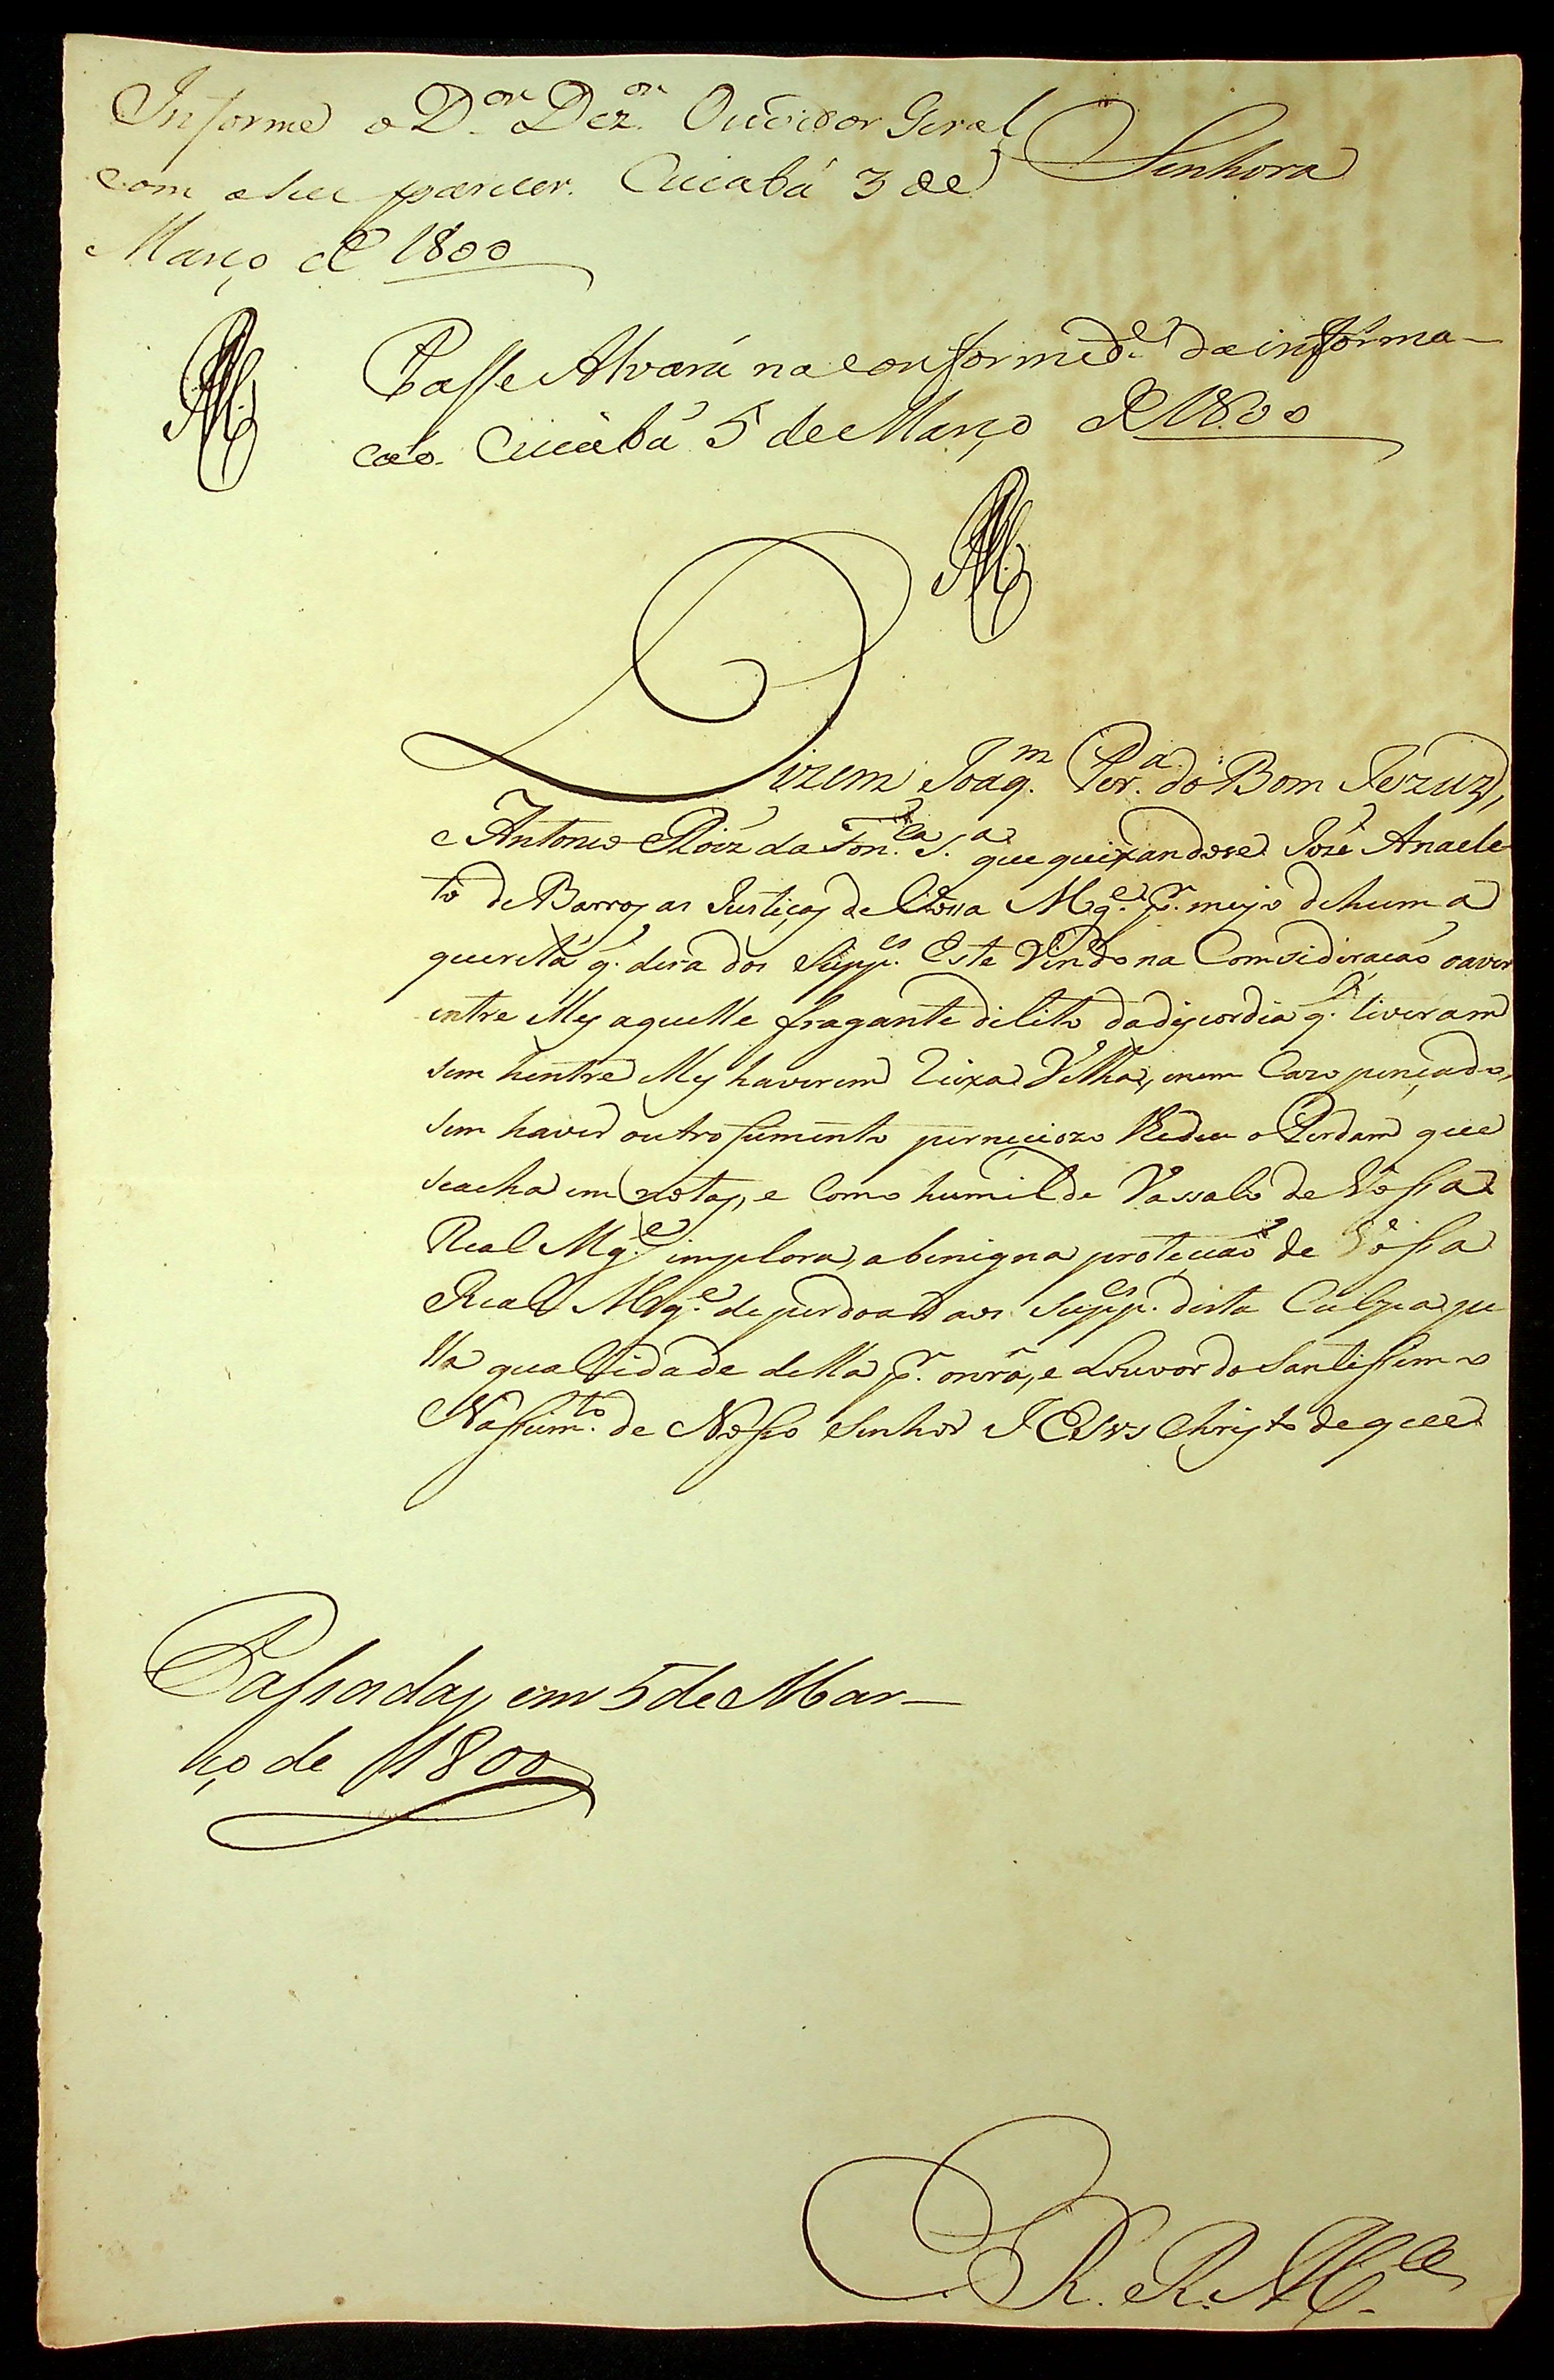 Informe o D.or Dez.or Ouvidor Geral
com o seu parecer. Cuiabá 3 de
Março de 1800
Senhora
Passe Alvará na conformid.e da informa-
cão. Cuiabá 5 de Março de 1800
Dizem Joaq.m Per.a do Bom Jezuz,
e Antonio Roiz da Fon.ca S.a que queixandose Jozé Anacle-
to de Barros as Justiças de Vossa Mg.e p.r meyo de huma
querela q. dera dos Supp.es Este Vindo na Comsidiração o aver
entre elles aquelle fragante dilito da discordia q. tiveram
sem hentre elles haverem Rixa Velha, enem Cazo pençado,
sem haver outro fumento perneciozo Redeu o Perdam que
seacha em notas, e Como humilde Vassalo de Vossa
Real Mg.e implora, a benigna protecção de Vossa
Real Mg.e de perdoar aos Supp.es desta Culpa pe
lla qualidade della p.r onrra, e Louvor do Santissimo
Nassim.to de Nosso Senhor JESUS Christo de que
Passadas em 5 de Mar-
ço de 1800
E. R. M.ce